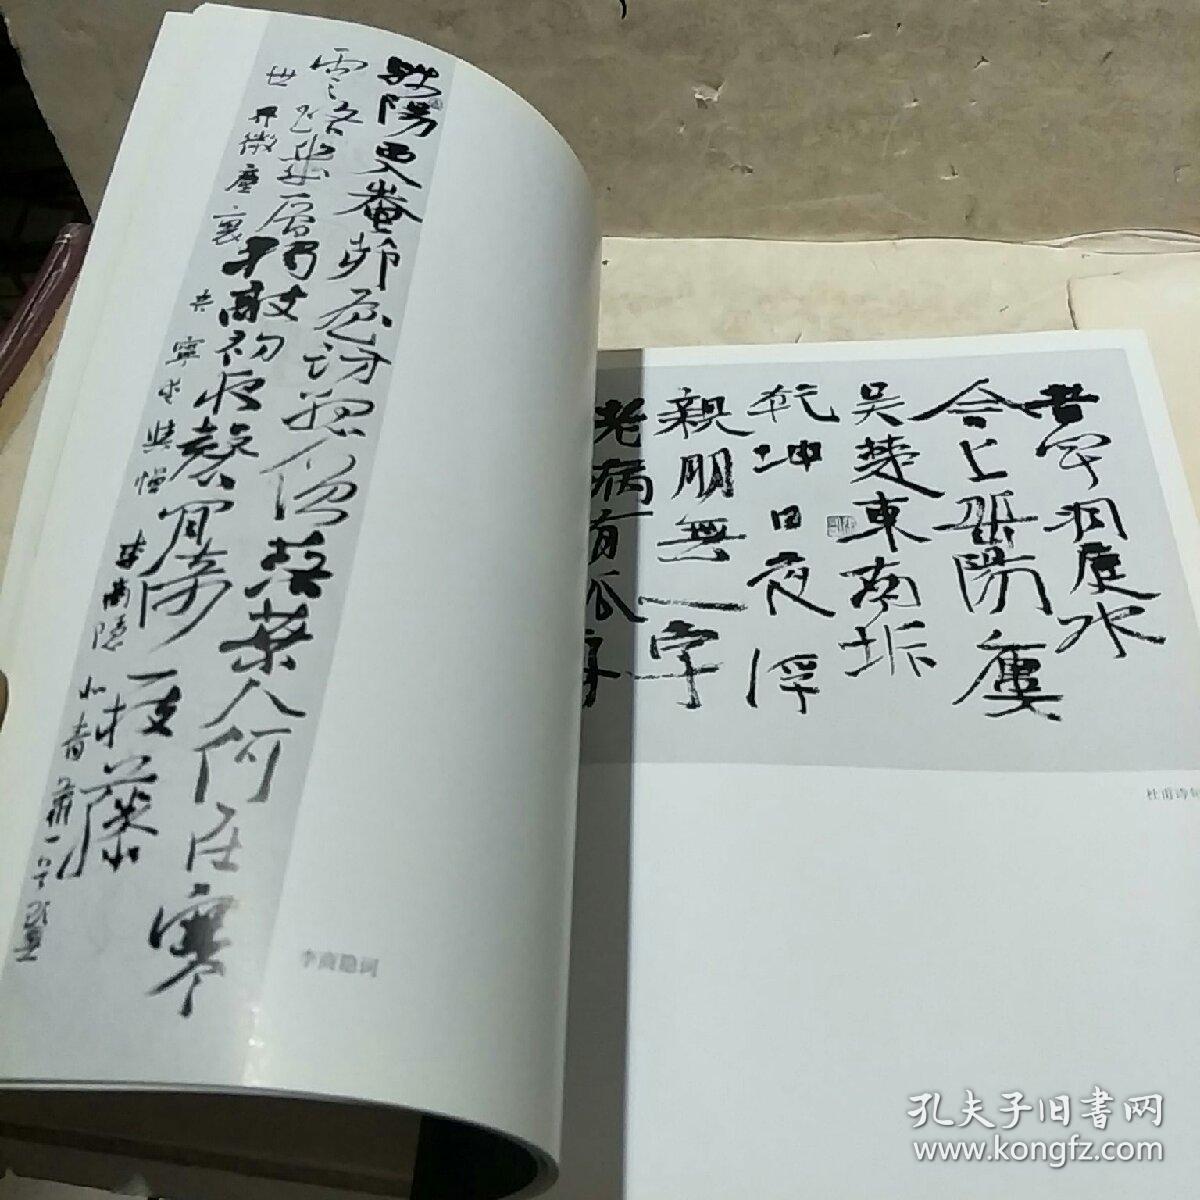 残陽西入崦茆屋訪孤僧落葉人何在寒
雲路幾層獨敲初夜磬閒倚一枝藤
世界微塵裏吾寧愛與憎 李商隱北青蘿
李商隐词
昔聞洞庭水
今上岳陽樓
吳楚東南坼
乾坤日夜浮
親朋無一字
老病有孤舟
杜甫诗句
孔夫子旧書网
www.kongfz.com